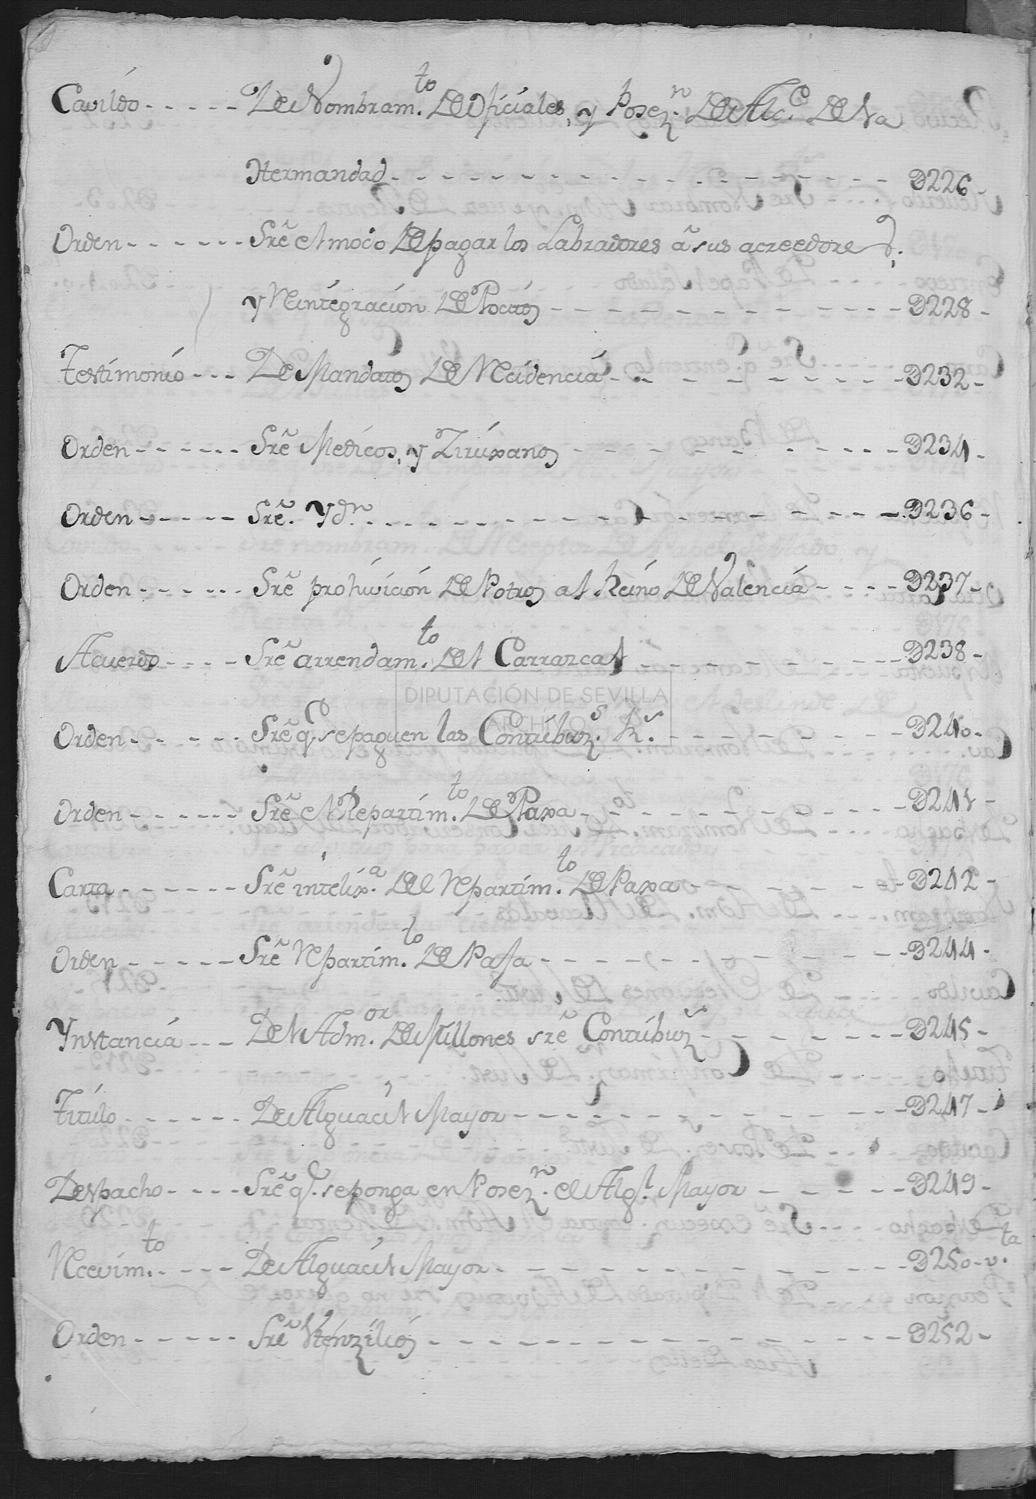 Cavildo - - - - - De Nombram.to De Oficiales, y Posez.n De Alc.e De La
Hermandad - - - - - D226 -
Orden - - - - - Sre el modo De pagar los Labradores â sus acreedores,
y Reintegracion De Pocitos - - - - - D228 -
Testimonio - - - De Mandatos De Recidencia - - - - - D232 -
Orden - - - - - Sre Medicos, y Ziruxanos - - - - - D234 -
Orden - - - - - Sre. Yd.n - - - - - D236 -
Orden - - - - - Sre prohivicion De Potros al Reino De Valencia - - - - D237 -
Acuerdo - - - - Sre arrendam.to Del Carrascal - - - - - D238 -
DIPUTACIÓN DE SEVILLA
ARCHIVO
Orden - - - - - Sre q.e se paguen las Contribuz.s R.s - - - - - D240 -
Orden - - - - - Sre el Repartim.to De Paxa - - - - - D241 -
Carta - - - - - Sre intelix.a Del Repartim.to De Paxa - - - - - D242 -
Orden - - - - - Sre Repartim.to De Paja - - - - - D244 -
Ynstancia - - - Del Adm.or De Millones sre Contribuz.s - - - - - D245 -
Titulo - - - - - De Alguacil Mayor - - - - - D247 -
Despacho - - - - Sre q.e se ponga en Posez.n el Alg.l Mayor - - - - - D249 -
Recevim.to - - - - De Alguacil Mayor - - - - - D250 - v.ta
Orden - - - - - Sre Vtenzilios - - - - - D252 -